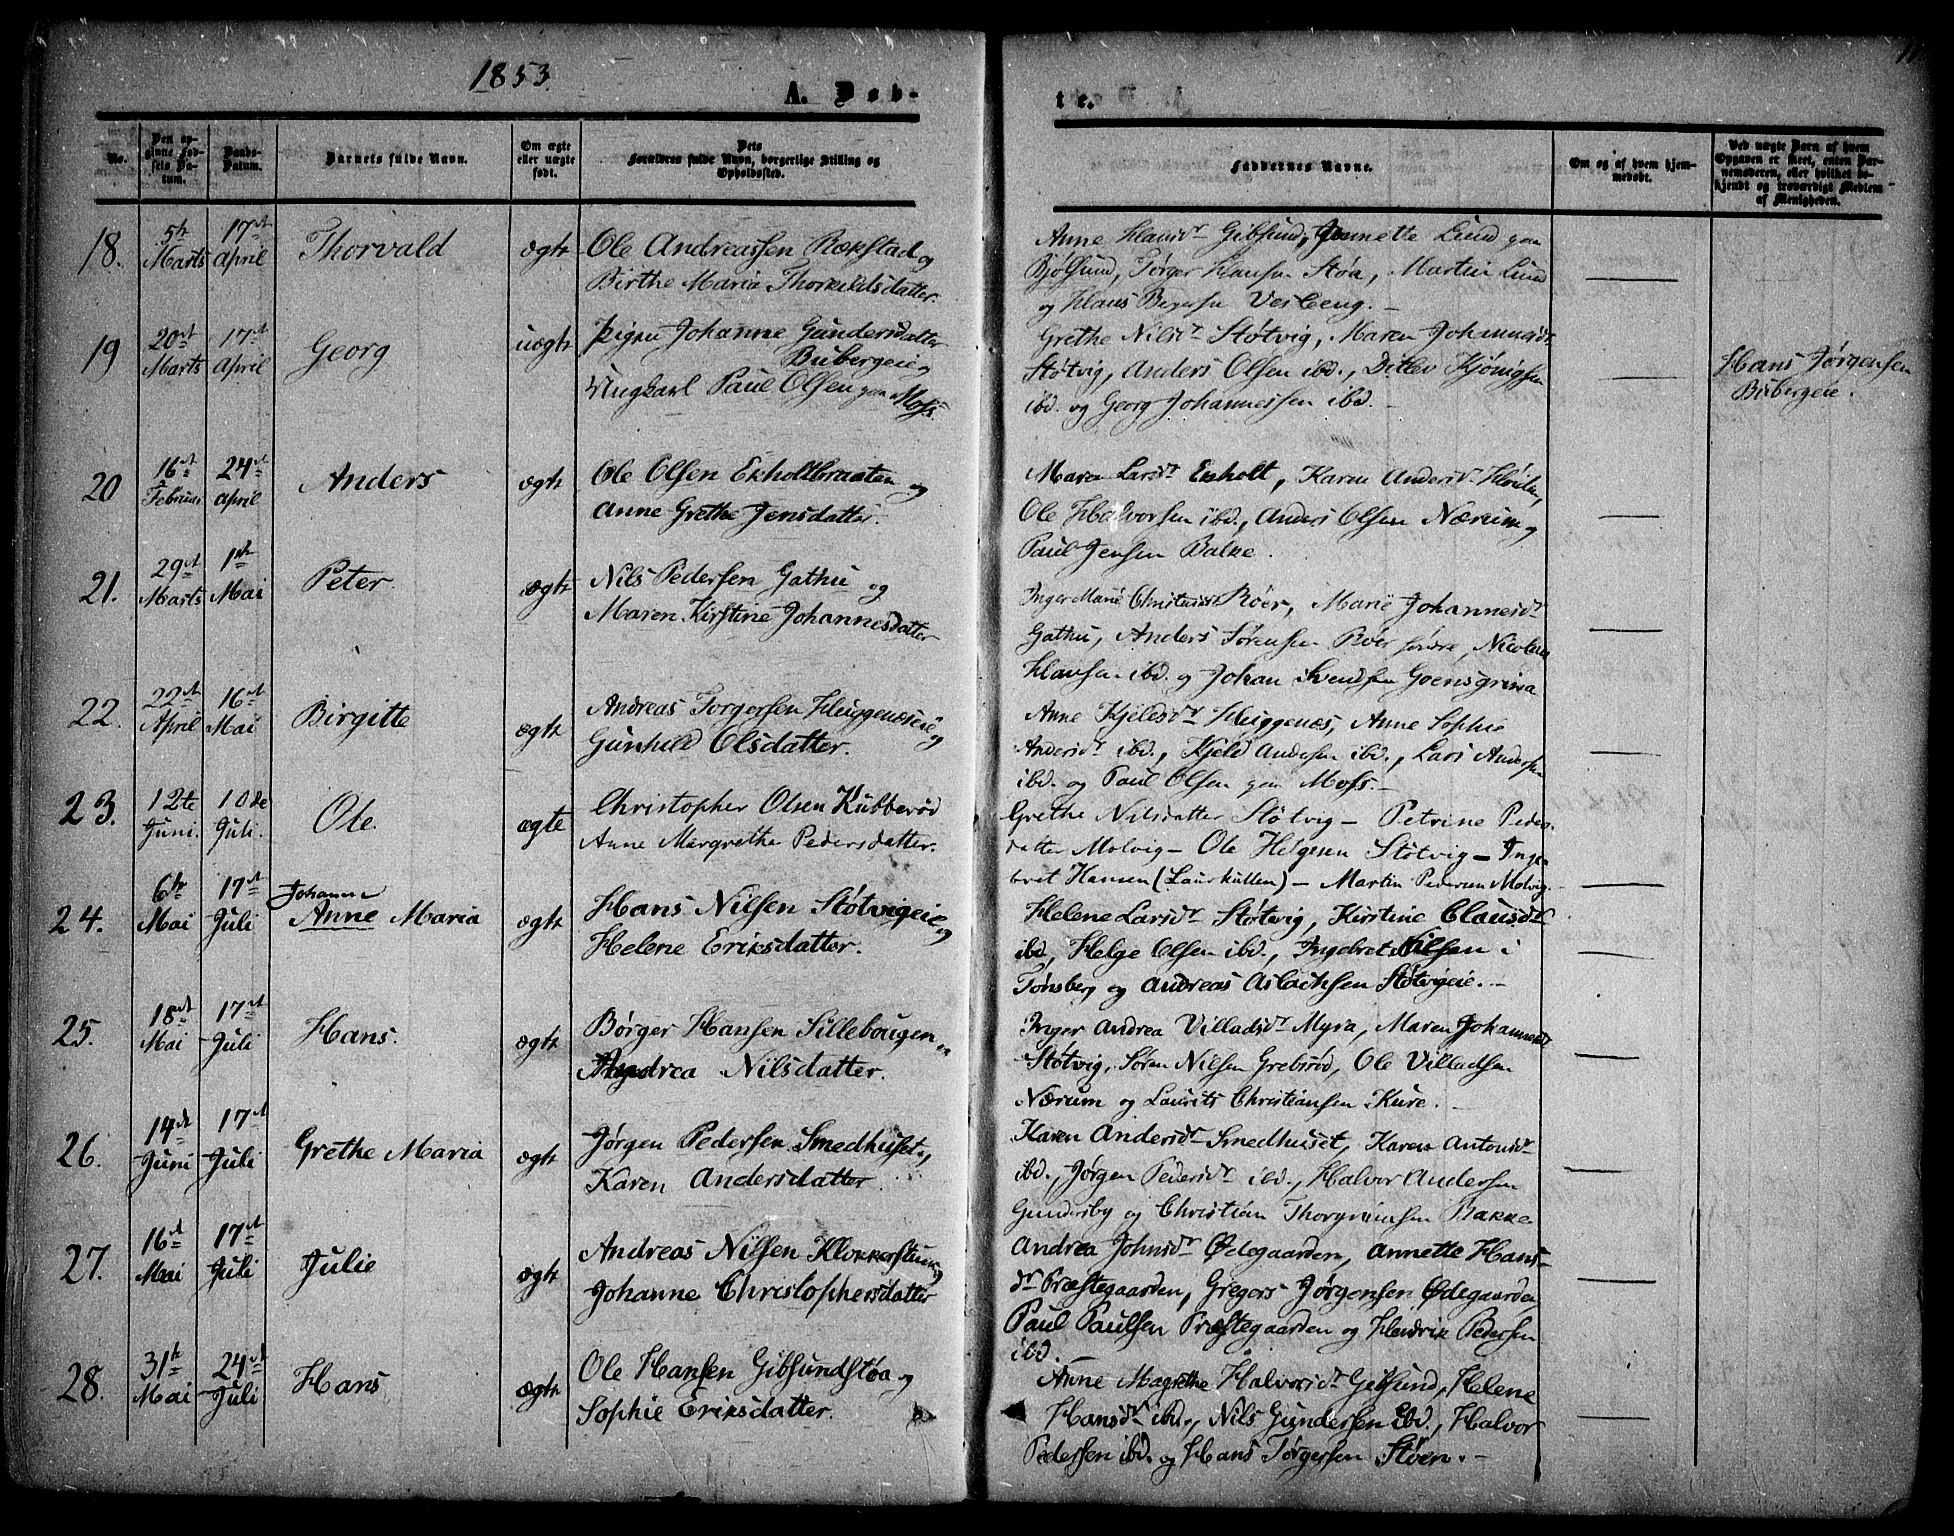 1853.
A. Døb-
te.
No.
Den opginne Fødsels Datum.
Daabs-Datum.
Barnets fulde Navn.
Om ægte eller uægte født.
Dets Forældres fulde Navn, borgerlige Stilling og Opholdssted.
Faddernes Navne.
Om og af hvem hjemmedøbt.
Ved uægte Børn af hvem Opgaven er skeet, enten Barnemoderen, eller hvilket bekjendt og troværdigt Medlem af Menigheden.
18. 5te Marts 17de April Thorvald ægte
Ole Andreassen Rækstad og
Birthe Maria Thorkildsdatter
Anne Klausdr Gibsund, Jeanette Lund
Bjølsund, Jørger Hansen Støa, Martin Lund
og Klaus Vesteng.
19 20de Marts 17de April Georg uægte
Pigen Johanne Gundersdatter
Bubergeie og
Ungkarl Paul Olsen Moss.
Grethe Nilsdr Støtvig, Maren Johannesdr
Støtvig, Anders Olsen ibd., Ditlev Kjønigsen
ibd. og Georg Johannessen ibd.
Hans Jørgensen
Bubergeie.
20 16de Februar 24de April Anders ægte
Ole Olsen Ekholtbraaten og
Anne Grethe Jensdatter.
Maren Larsdr Ekholt, Karen Andersdr
Ole Halvorsen ibd., Anders Olsen Nærum og
Paul Jensen Bakke.
21. 29de Marts 1ste Mai Peter. ægte
Nils Pedersen Gathu og
Maren Kirstine Johannesdatter
Inger Marie Røer, Marie Johannesdr
Gathu, Anders Sørensen Røer søndre, Nicolai
Klausen ibd. og Johan Svendsen
22. 22de April 16de Mai Birgitte ægte
Andreas Torgersen Huggenæseie og
Gunhild Olsdatter.
Anne Kjeldsdr Huggenæs, Anne Sophie
Andersdr ibd., Kjeld Andersen ibd., Lars Andersen
ibd. og Paul Olsen Moss.
23. 12te Juni. 10de Juli. Ole. ægte
Christopher Olsen Kubberød
Anne Margrethe Pedersdatter.
Grethe Nilsdatter Støtvig — Petrine Peders-
datter Molvig — Ole Helgesen Støtvig — Inge-
bret Hansen (Laurkullen) — Martin Pedersen Molvig.
24. 6te Mai 17de Juli Johanne
Anne Maria ægte
Hans Nilsen Støtvigeie og
Helene Eriksdatter.
Helene Larsdr Støtvig, Kirstine Clausdr
ibd, Helge Olsen ibd., Ingebret Nilsen i
Tønsberg og Andreas Aslachsen Støtvigeie.
25. 18de Mai 17de Juli Hans. ægte
Børger Hansen Sillebougen
Andrea Nilsdatter.
Inger Andrea Villadsdr Myra, Maren Johannesdr
Støtvig, Søren Nilsen Grebsrød, Ole Villadsen
Nærum og Laurits Christiansen Kure.
26. 14de Juni 17de Juli Grethe Maria ægte
Jørgen Pedersen Smedhuset,
Karen Andersdatter.
Karen Andersdr Smedhuset, Karen Antonsdr
ibd., Jørgen Pedersdr ibd., Halvor Andersen
Gundersby og Christian Thorgrimsen Bakke
27. 16de Mai 17de Juli Julie ægte
Andreas Nilsen Klokkerstuen og
Johanne Christophersdatter
Andrea Johnsdr Ødegaarden, Annette Hans-
dr Præstegaarden, Gregers Jørgensen Ødegaarden,
Paul Paulsen Præstegaarden og Hendrik Pedersen
ibd.
28. 31te Mai 24de Juli Hans ægte
Ole Hansen Gibsundstøa og
Sophie Eriksdatter.
Anne Magrethe Halvorsdr Gibsund, Helene
Hansdr ibd., Nils Gundersen ibd., Halvor
Pedersen ibd. og Hans Torgersen Støen.